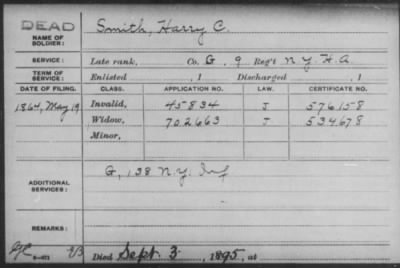 DEAD
NAME OF SOLDIER: Smith, Harry C.
SERVICE: Late rank, Co. G, 9 Reg't N.Y. H.A.
TERM OF SERVICE: Enlisted , 1 Discharged , 1
DATE OF FILING. CLASS. APPLICATION NO. LAW. CERTIFICATE NO.
1864, May 19 Invalid, 45834 J 576158
Widow, 702663 J 534678
Minor,
ADDITIONAL SERVICES: G, 138 N.Y. Inf
REMARKS:
Died Sept. 3, 1895, at